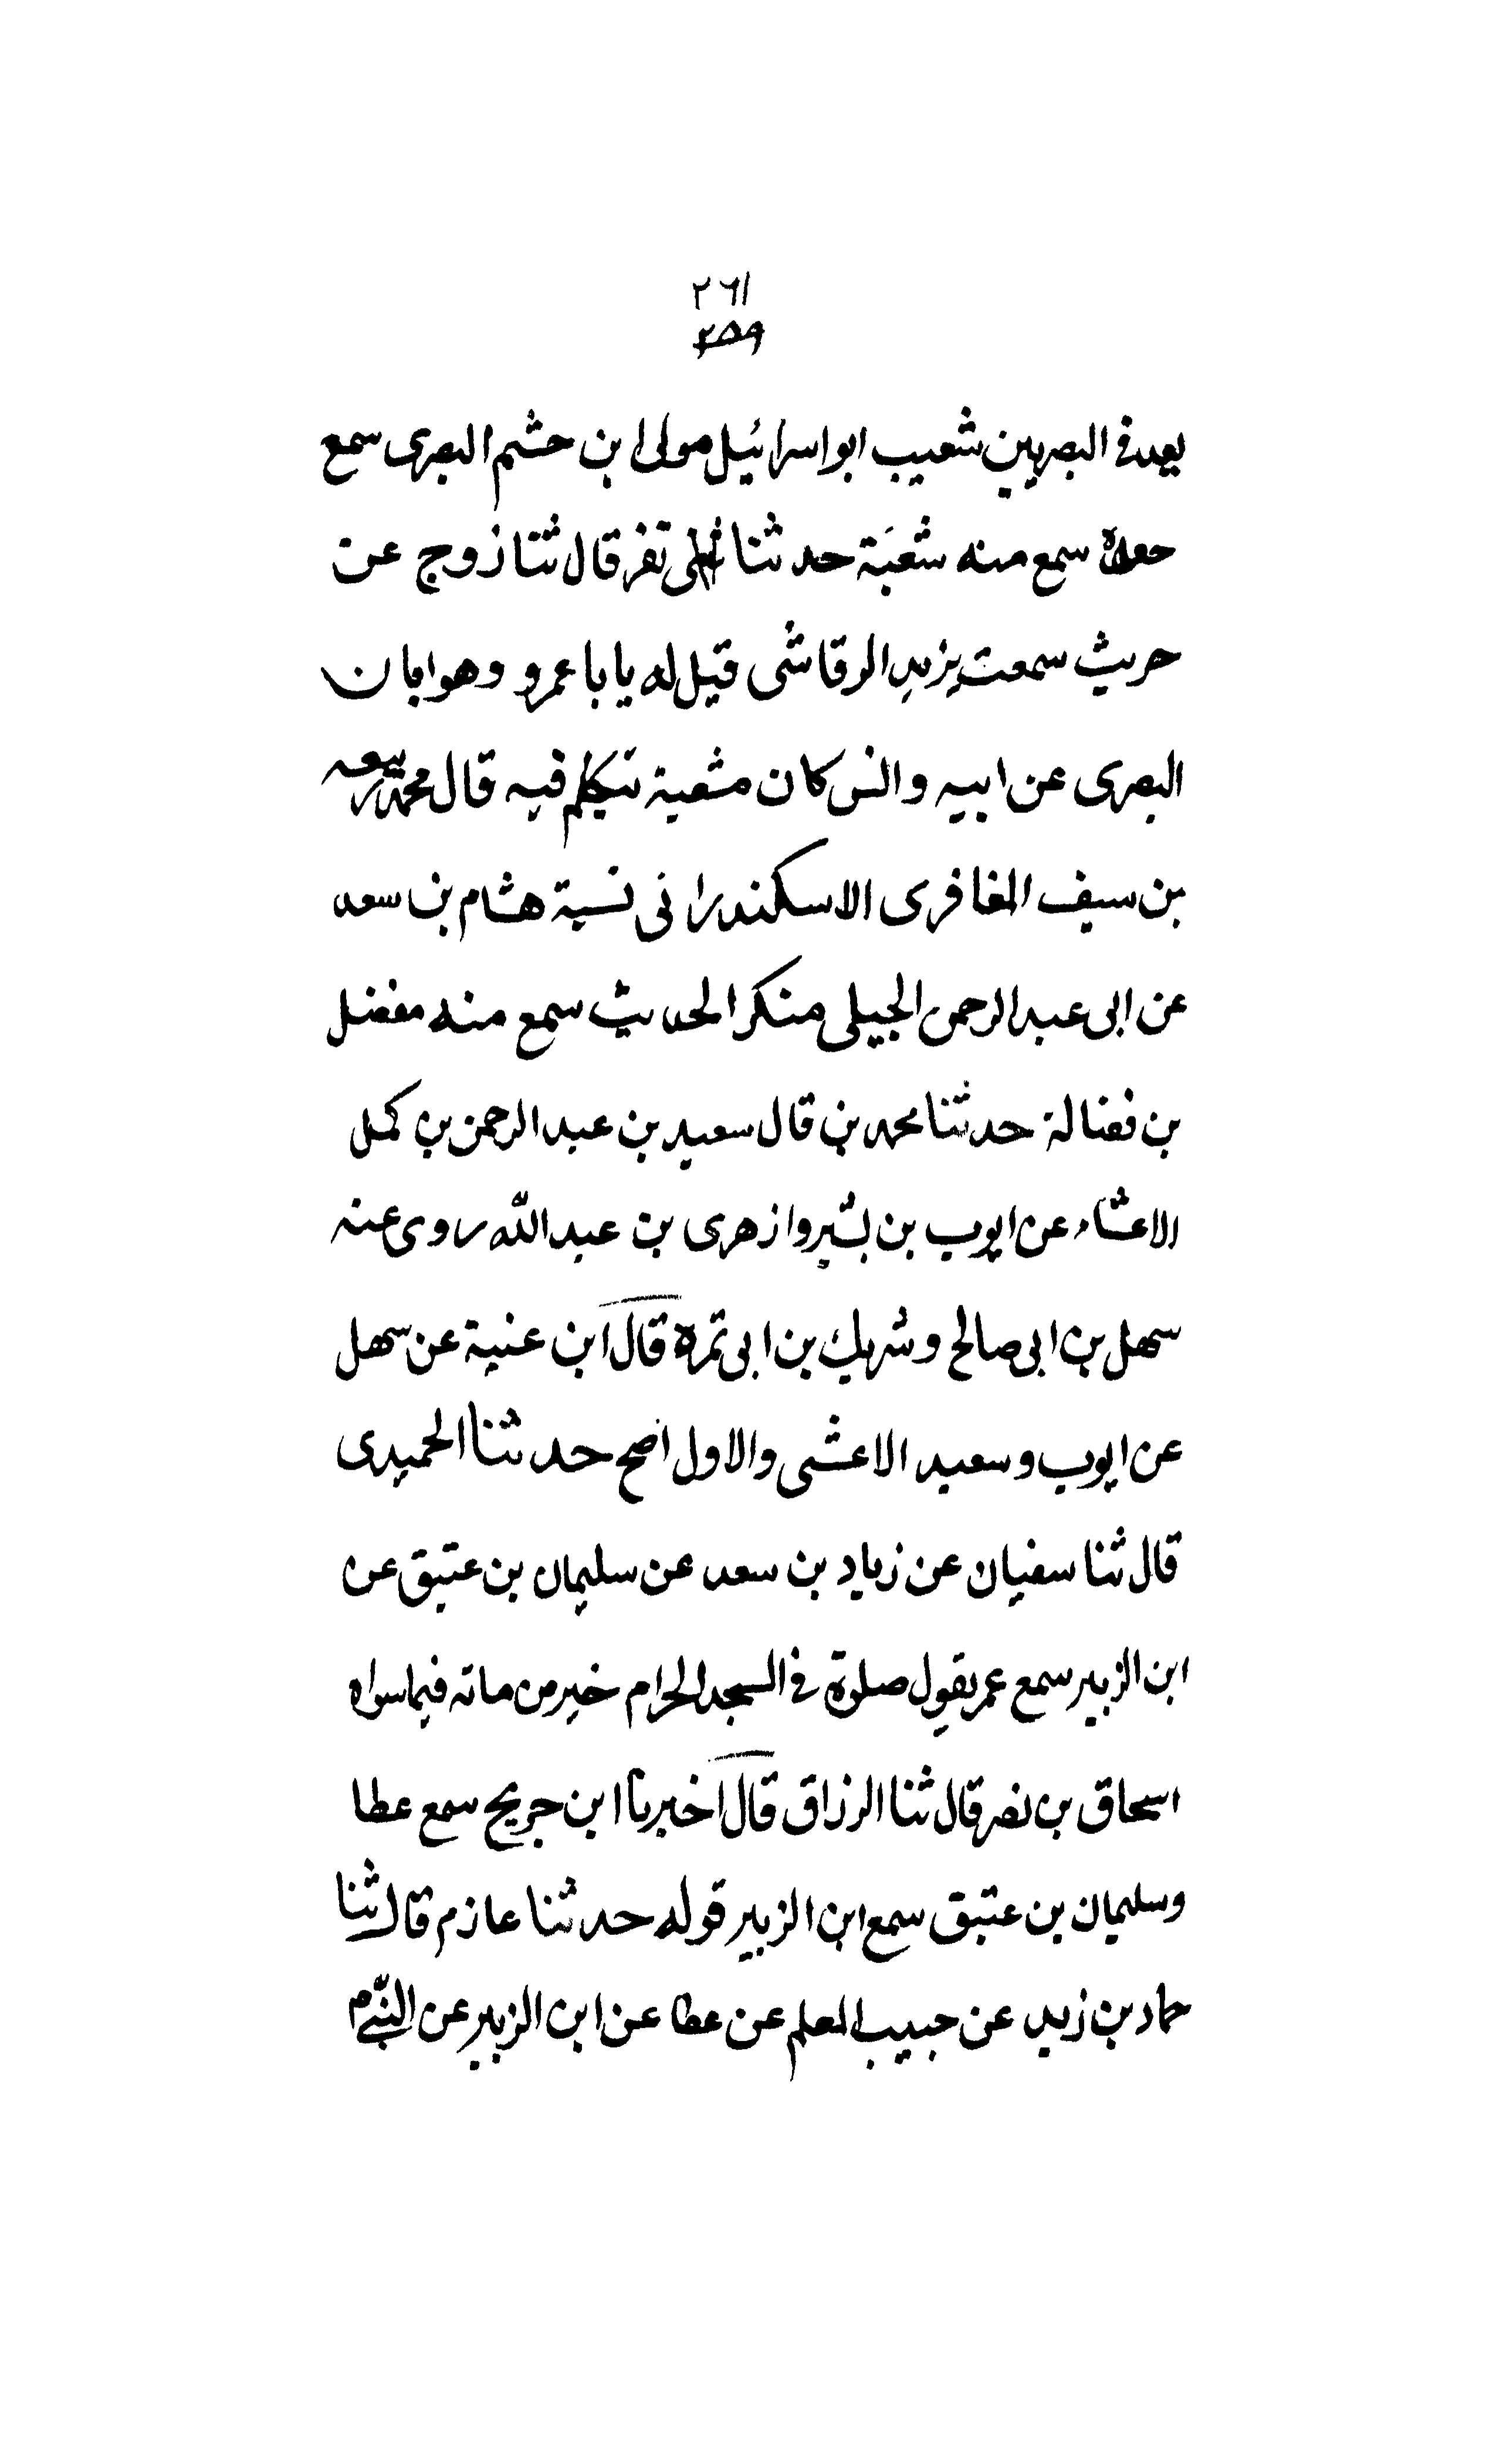 ٢٦١
٢٥٩
يعد فى البصريين شعيب ابو اسرائيل مولى ابن حشم البصرى سمع
جعدة سمع منه شعبة حدثنا تفر قال ثنا زوج عن
حريث سمعت يزيد الرقاشى قيل له يا با عمرو وهو ابان
البصرى عن ابيه والنس كان شعبة تيكلم فيه قال محمد ربيعه
بن سيف المغافرى الاسكندرانى نسبة هشام بن سعد
عن ابى عبد الرحمن الجيلى منكر الحديث سمع منه مفضل
بن فضالة حدثنا محمد بن قال سعيد بن عبد الرحمن بن كمل
الاعشاء عن ايوب بن بشير وازهرى بن عبد الله روى عنه
سهل بن ابى صالح وشريك بن ابى تمرة قال ابن عنية عن سهل
عن ايوب وسعيد الاعشى والاول اصح حدثنا الحميدى
قال ثنا سفيان عن زياد بن سعد عن سليمان بن عتيق عن
ابن الزبير سمع عمر يقول صلوة فى السجد الحرام خير من ماته فيما سواه
اسحاق بن نصر قال ثنا الرزاق قال اخبرنا ابن جريج سمع عطا
وسليمان بن عتيق سمع ابن الزبير قوله حدثنا عازم قال ثنا
حماد بن زيد عن حبيب المعلم عن عطا عن ابن الزبير عن النبى م